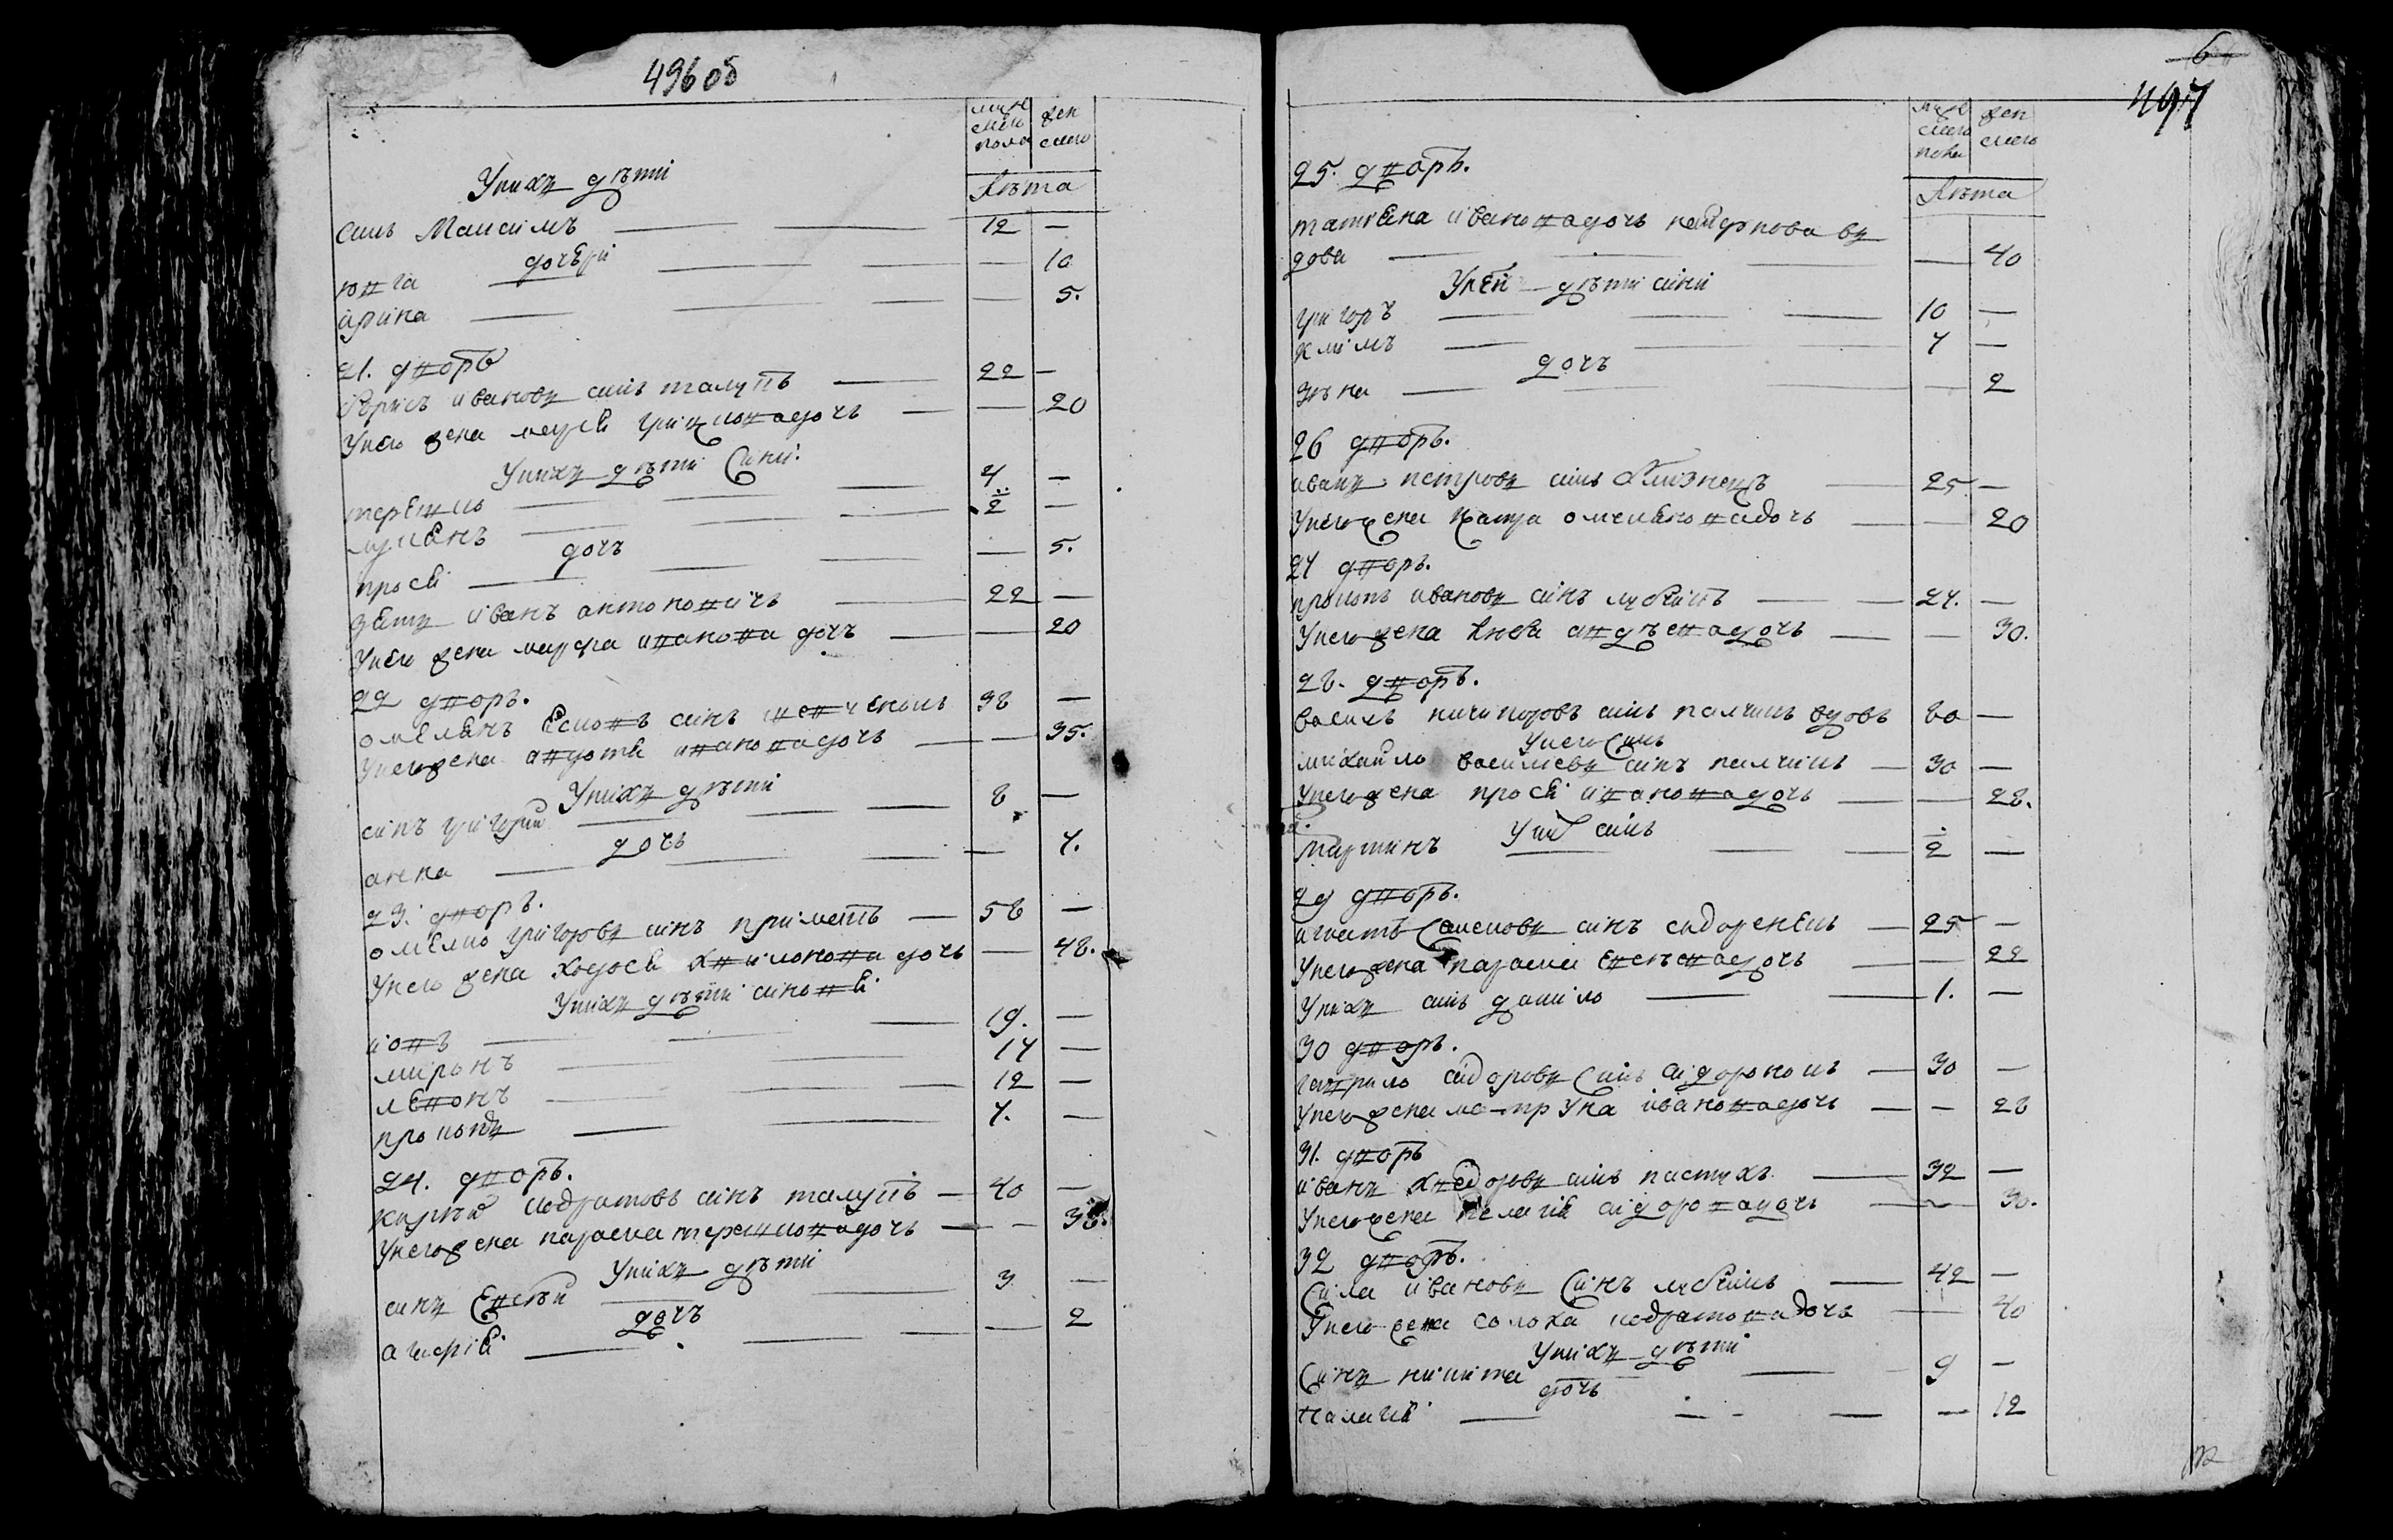 496 об
муж
ского
пола
жен
ского
Лѣта
У нихъ дѣти
синъ Максимъ — 12 —
дочери
— 10
ирина — 5.
21. дворъ
борисъ ивановъ синъ — 22 —
У него жена дочь — 20
У нихъ дѣти сини.
терешко — 4. —
лукянъ — 2 —
дочъ
проскя — 5.
зять иванъ антоновичъ — 22 —
У него жена марфа иванова дочъ — 20
22 дворъ.
омелянъ синъ шевченокъ 38 —
У него жена авдотя ивановадочъ — 35.
У нихъ дѣти
синъ григорий — 8 —
дочь
анна — 7.
23. дворъ.
омелко григоровъ синъ — 58 —
У него жена ходося дочь — 48.
У нихъ дѣти синовя.
иовъ — 19. —
миронъ — 17 —
левонъ — 12 —
прокопъ — 7. —
24. дворъ.
карпъ кодратовъ синъ — 40 —
У него жена параска терешковадочъ —
У нихъ дѣти
синъ Евсѣй — 3 —
дочъ
агафия — 2
6
497
муж
ского
пола
жен
ского
Лѣта
25. дворъ.
татяна ивановадочъ въ
дова — 40
У ней дѣти сини
григоръ — 10 —
климъ — 7 —
дочъ
— 2
26 дворъ.
иванъ петровъ синъ близнецъ — 25 —
У него жена омеляновадочъ — 20
27 дворъ.
прокопъ ивановъ синъ — 27. —
У него жена авдѣевадочъ — 30.
28. дворъ.
василь ничипоровъ синъ палчикъ вдовъ 60 —
У него синъ
михайло василиевъ синъ палчикъ — 30 —
У него жена проскя ивановадочъ — 28.
У них синъ
мартинъ — 2 —
29 дворъ.
игнатъ семеновъ синъ сидоренко — 25 —
У него жена параска Евсѣевадочъ — 22
У нихъ синъ данило — 1. —
30 дворъ.
гаврило сидоровъ синъ — 30 —
У него жена мотруна ивановадочъ — 28
31. дворъ
иванъ хведоровъ синъ пастухъ — 32 —
У него жена пелагия сидоровадочъ — 30.
32 дворъ.
Сила ивановъ синъ — 42 —
У него жена солоха кодратовадочъ — 40
У нихъ дѣти
Синъ никита — 9 —
дочъ
палагия — 12